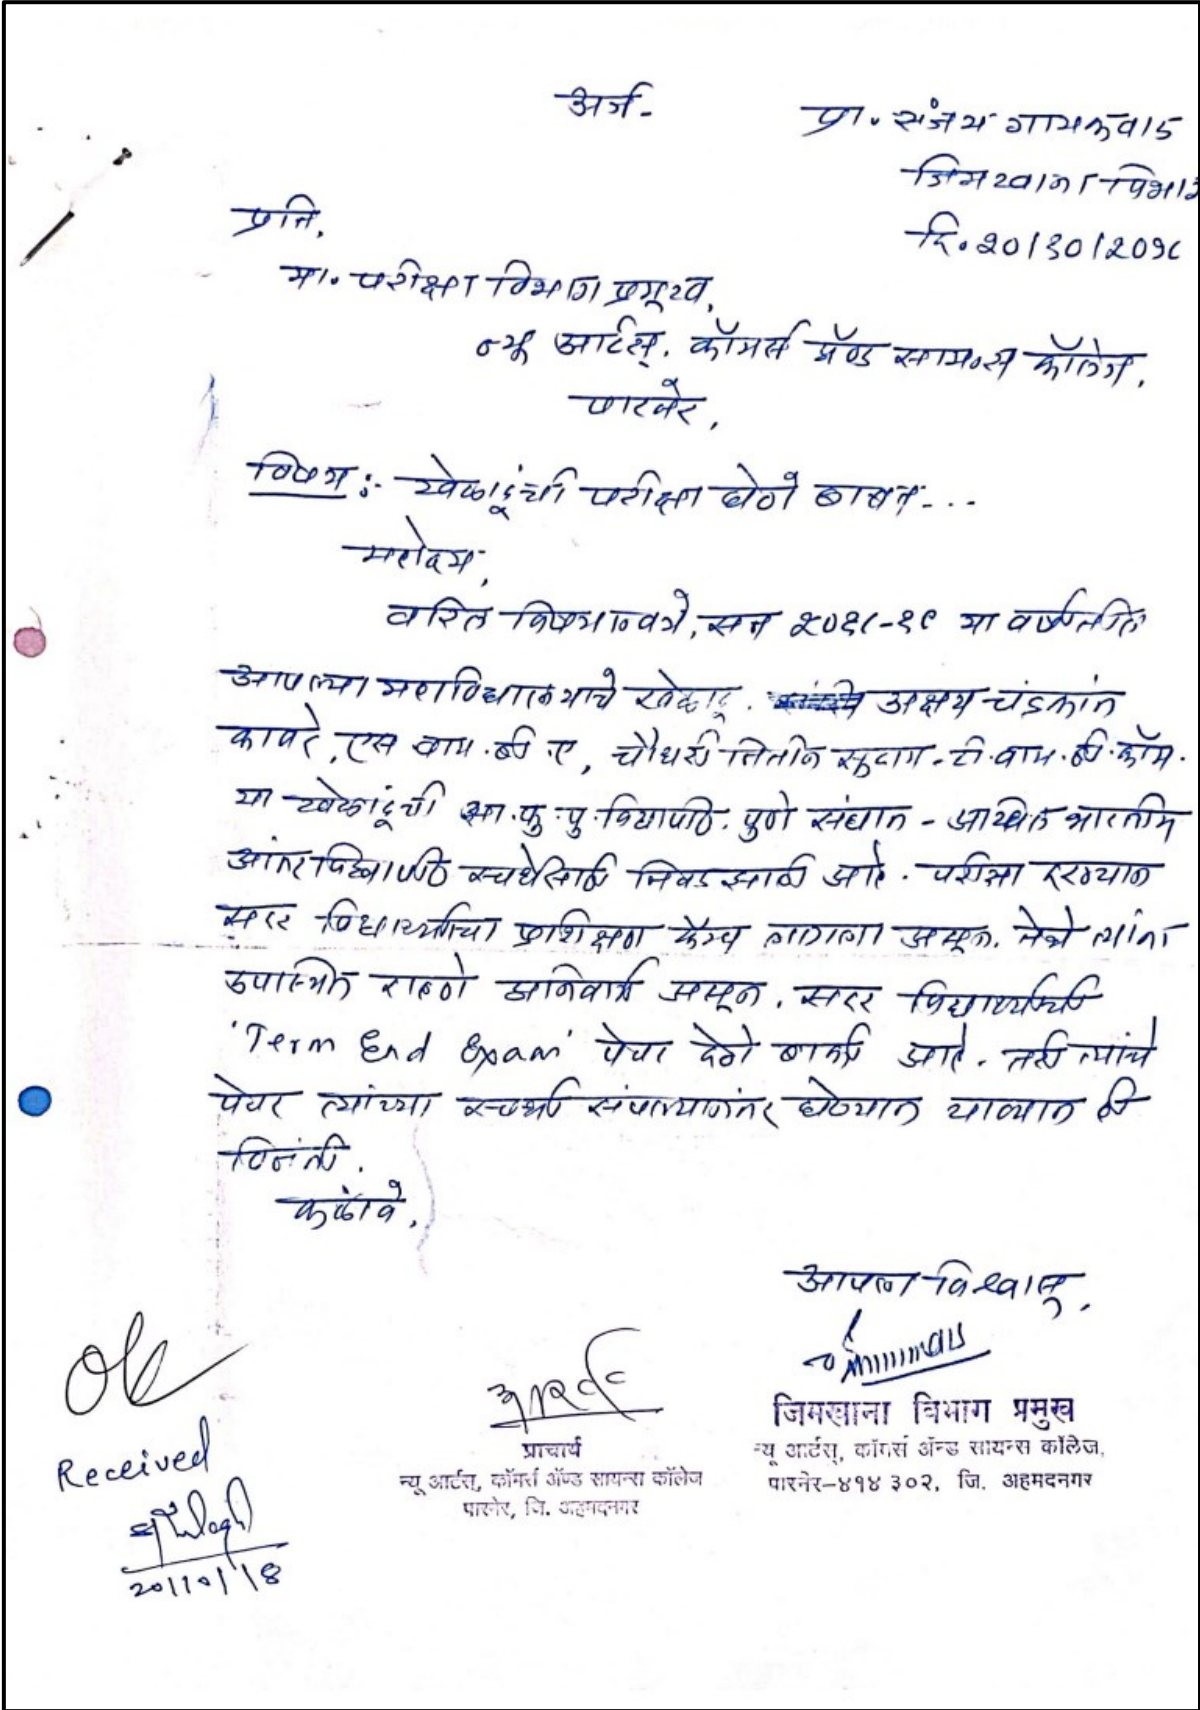 अर्ज.
प्रा. संजय गायकवाड
जिमखाना विभाग
दि. २०/१०/२०१८
प्रति,
मा. परीक्षा विभाग प्रमुख,
न्यू आर्टस्. कॉमर्स अँण्ड सायन्स कॉलेज,
पारनेर,
विषय :- खेळाडूंची परीक्षा घेणे बाबत...
महोदय,
वरिल विषयान्वये, सन २०१८-१९ या वर्षातील
आपल्या महाविद्यालयाचे खेळाडू. अक्षय चंद्रकांत
कावरे, एस वाय. बी. ए, चौधरी नितीन सुदाम - टी. वाय. बी. कॉम.
या खेळाडूंची सा. फु. पु. विद्यापीठ. पुणे संघात - अखिल भारतीय
आंतर विद्यापीठ स्पर्धेसाठी निवड झाली आहे. परीक्षा दरम्यान
सदर विद्यार्थ्यांचा प्रशिक्षण कॅम्प लागला असून. तेथे त्यांना
उपस्थित राहणे अनिवार्य असून. सदर विद्यार्थ्यांची
'Term End Exam' पेपर देणे बाकी आहे. तरी त्यांचे
पेपर त्यांच्या स्पर्धा संपल्यानंतर घेण्यात याव्यात ही
विनंती.
कळावे,
आपला विश्वासू,
Ok
Received
20/10/18
प्राचार्य
न्यू आर्टस्, कॉमर्स अॅण्ड सायन्स कॉलेज
पारनेर, जि. अहमदनगर
जिमखाना विभाग प्रमुख
न्यू आर्टस्, कॉमर्स अॅन्ड सायन्स कॉलेज,
पारनेर-४१४ ३०२, जि. अहमदनगर